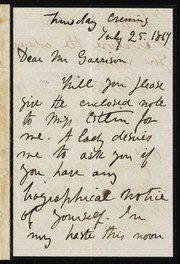 Thursday Evening
July 25. 1867
Dear Mr Garrison
Will you please
give the enclosed note
to Miss Estlin for
me. A lady desires
me to ask you if
you have any
biographical notice
of yourself. In
my haste this noon